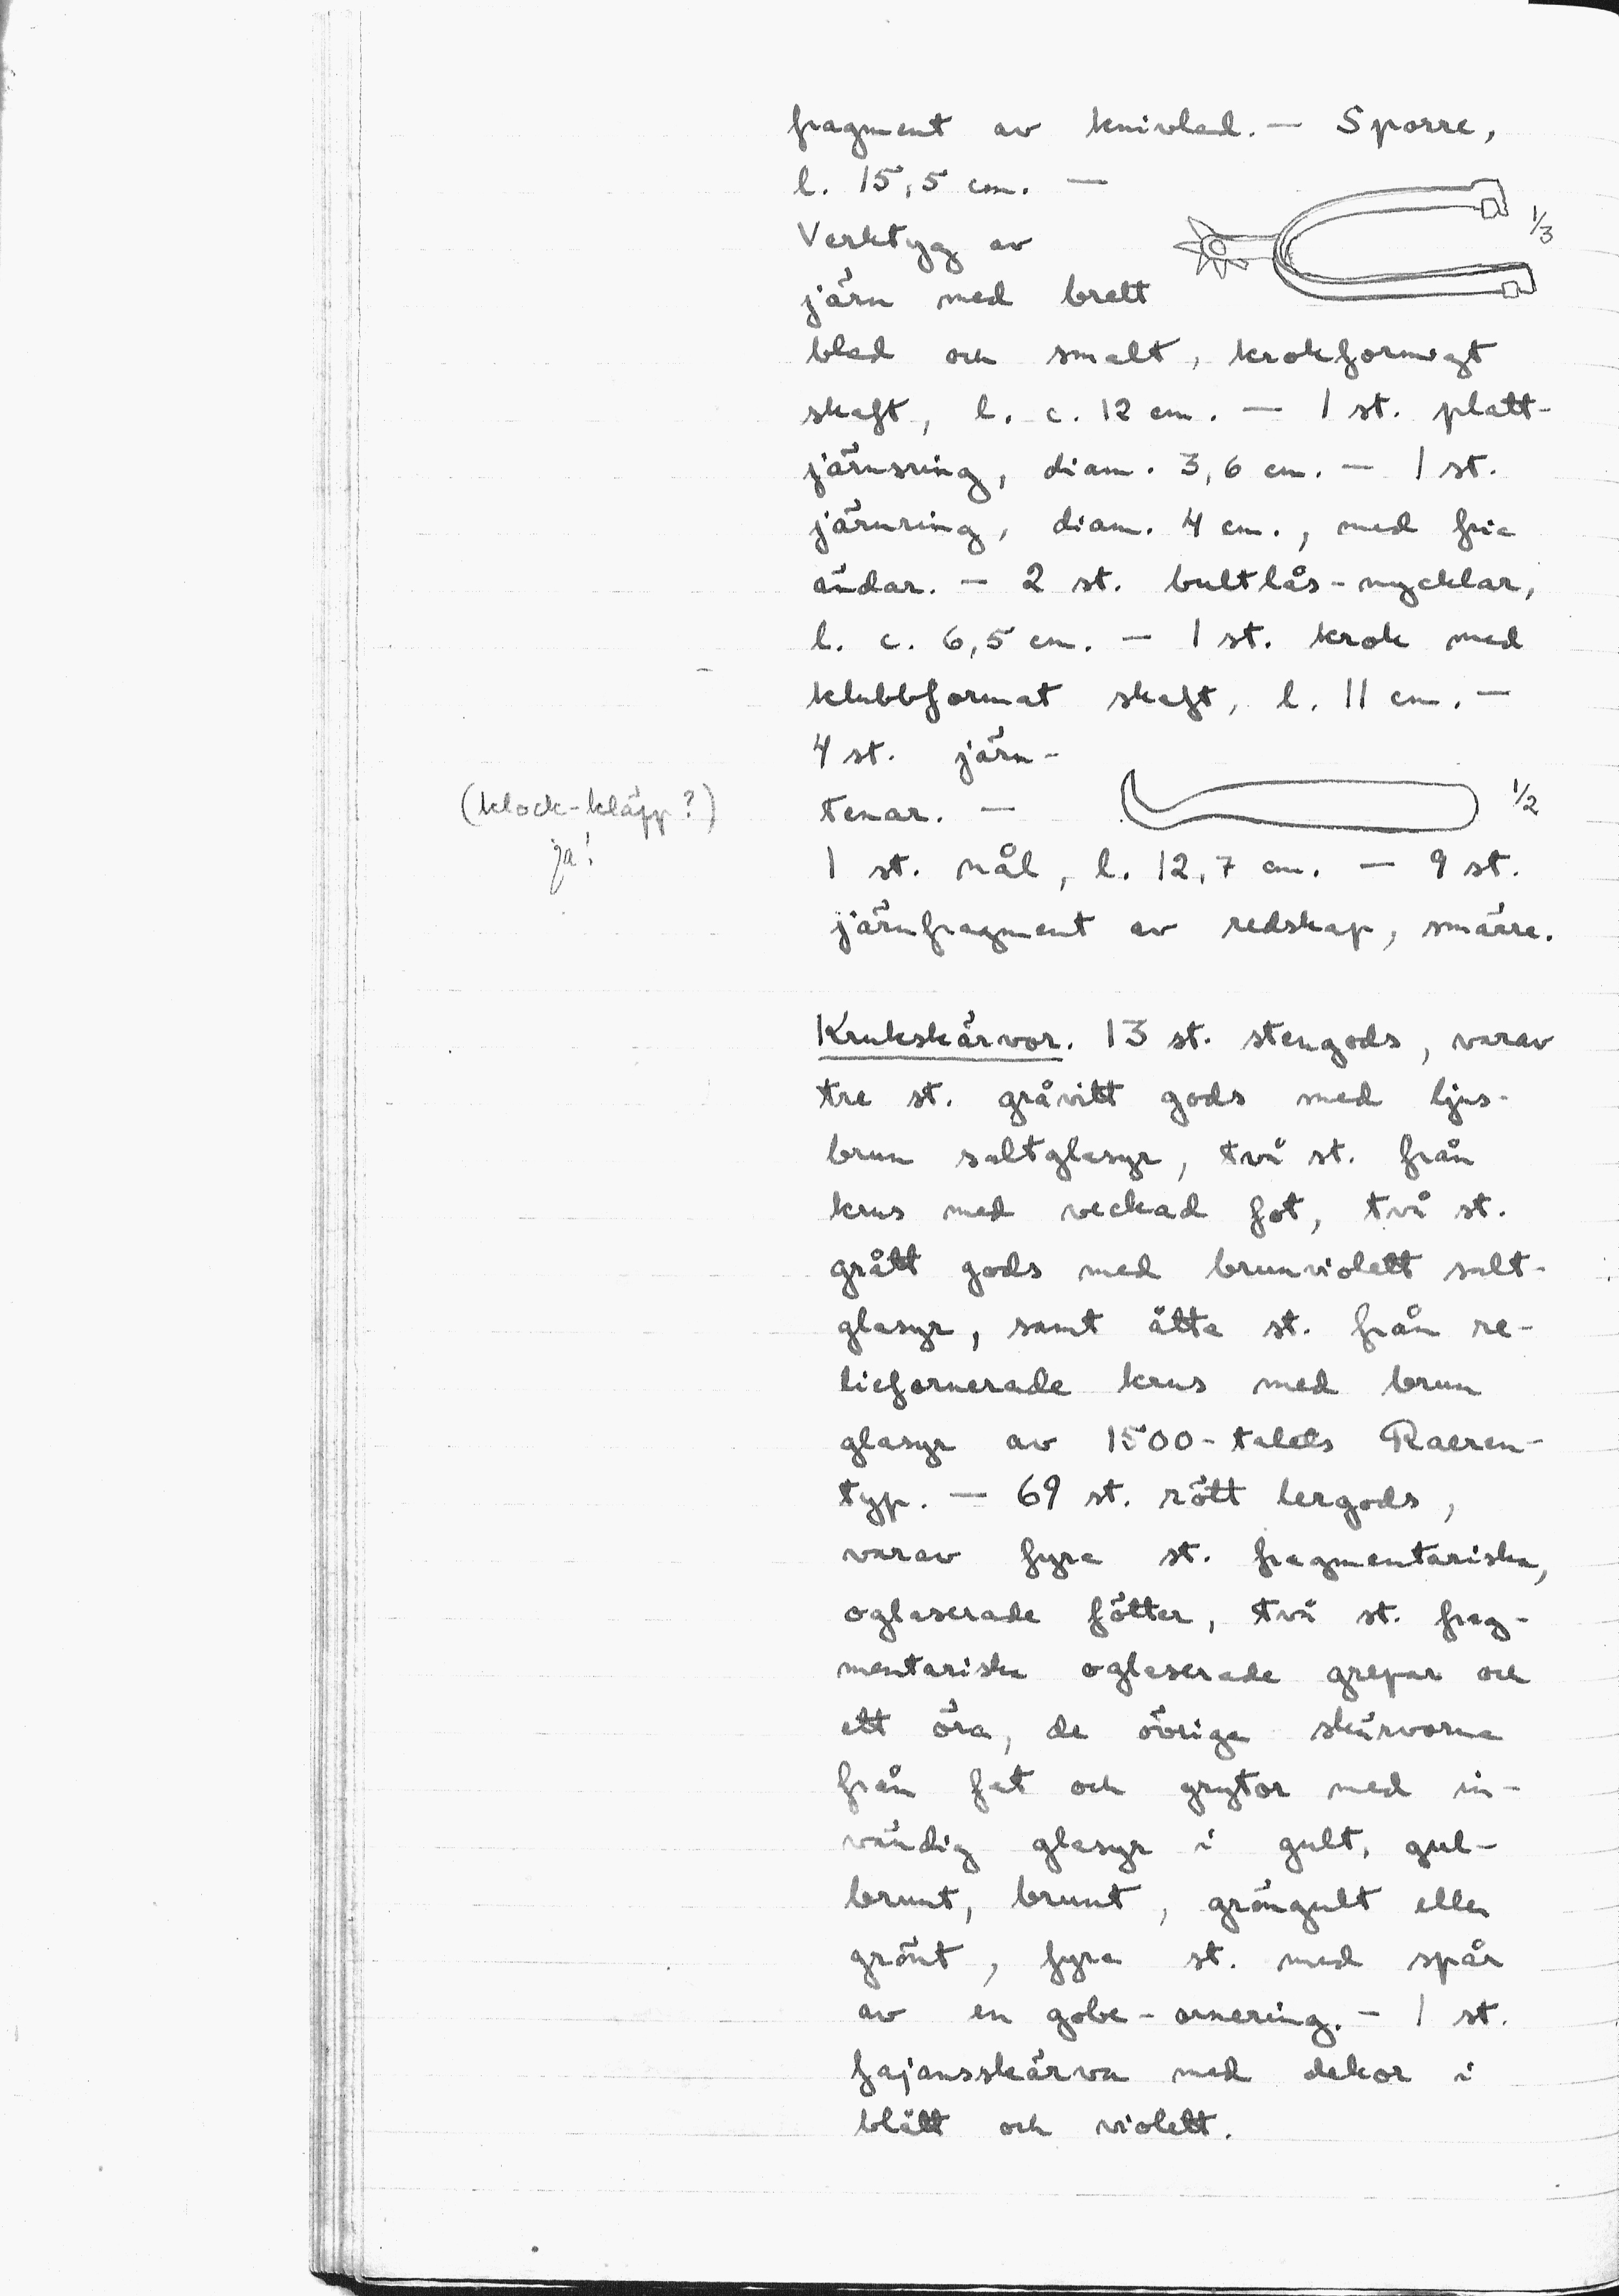 fragment av knivblad. — Sporre,
l. 15,5 cm. —
1/3
Verktyg av
järn med brett
blad och smalt, krokformigt
skaft, l. c. 12 cm. — 1 st. platt-
järnsring, diam. 3,6 cm. — 1 st.
järnring, diam. 4 cm., med fria
ändar. — 2 st. bultlås-nycklar,
l. c. 6,5 cm. — 1 st. krok med
klubbformat skaft, l. 11 cm. —
4 st. järn-
(klock-kläpp?)
ja!
tenar. —
1/2
1 st. nål, l. 12,7 cm. — 9 st.
järnfragment av redskap, smärre.
Krukskärvor. 13 st. stengods, varav
tre st. gråvitt gods med ljus-
brun saltglasyr, två st. från
krus med veckad fot, två st.
grått gods med brunviolett salt-
glasyr, samt åtta st. från re-
liefornerade krus med brun
glasyr av 1500-talets Raeren-
typ. — 69 st. rött lergods,
varav fyra st. fragmentariska,
oglaserade fötter, två st. frag-
mentariska oglaserade grepar och
ett öra, de övriga skärvorna
från fat och grytor med in-
vändig glasyr i gult, gul-
brunt, brunt, gröngult eller
grönt, fyra st. med spår
av en gobe-ornering. — 1 st.
fajansskärva med dekor i
blått och violett.